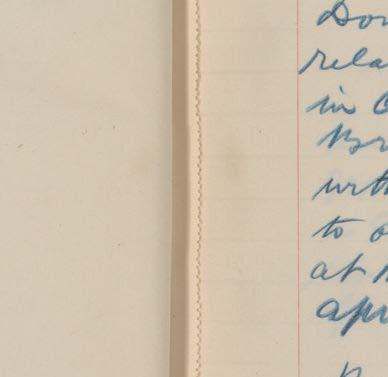 Don
rela
in C
Br
with
to o
at
apr